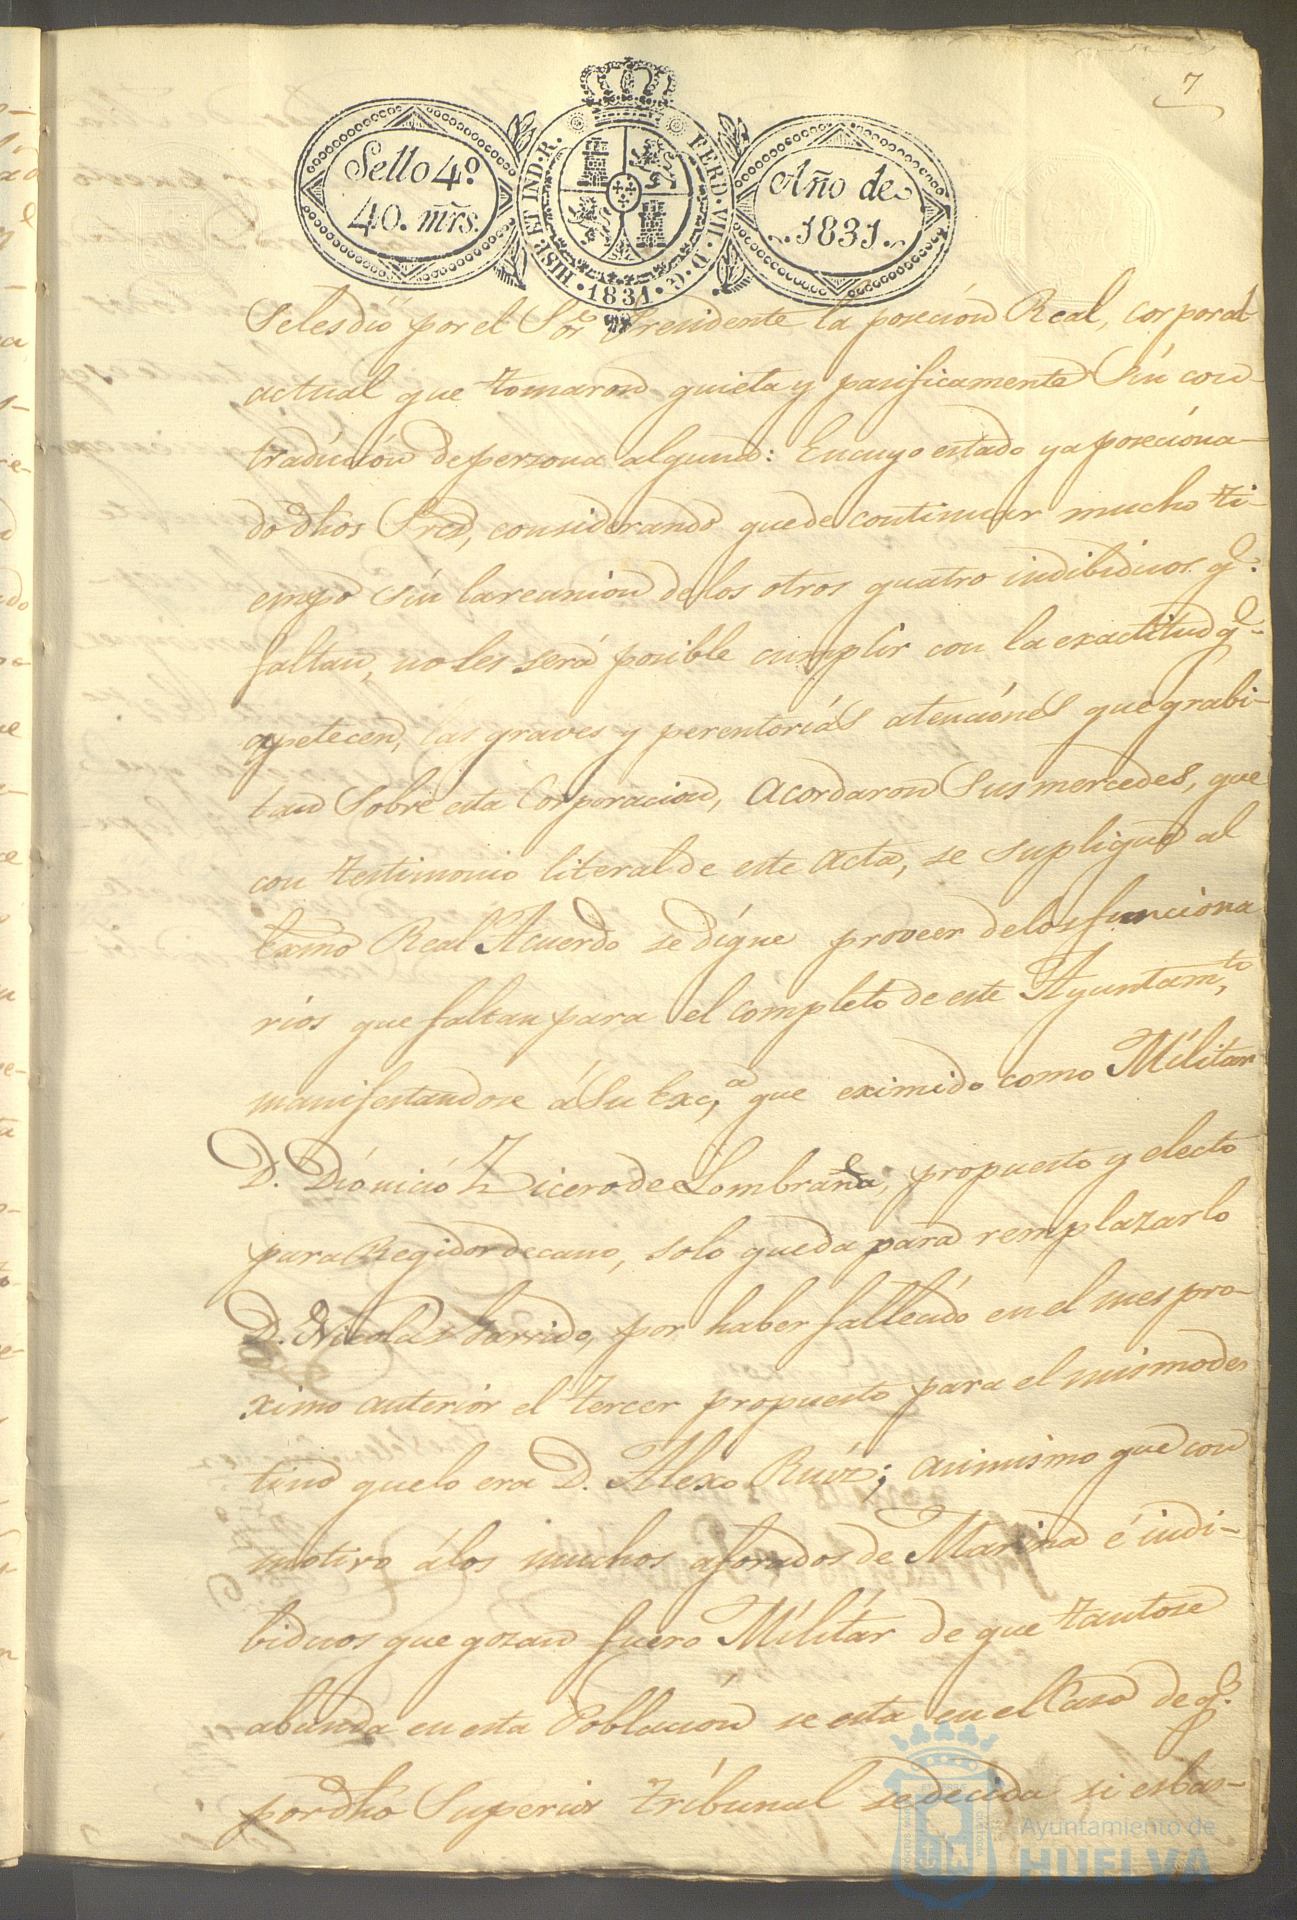 7
Sello 4º
40. mrs.
HISP. ET IND. R. FERD. VII. D. G. 1831.
Año de
1831.
Selesdió por el Sor. Presidente la poseción Real, corporal
actual que tomaron quieta y pasificamente Sin con-
tradición depersona alguna: Encuyo estado ya poseciona-
do dhos Sres, considerando quede continuar mucho ti-
empo sin lareunion de los otros quatro indibiduos q.e
faltan, no les será posible cumplir con la exactitud q.e
apetecen, las graves y perentorias atenciónes que grabi-
tan Sobre esta Corporacion, Acordaron Sus mercedes, que
con testimonio literal de este Acta, se suplique al
Exmo Real Acuerdo se digne proveer delos funciona
rios que faltan para el completo de este Ayuntam.to
manifestandose á Su Exc.a que eximido como Militar
D. Dionicio Zicero de Lombraña, propuesto y electo
para Regidor decano, solo queda para remplazarlo
D. Nicolas Garrido, por haber fallecido en el mes pro-
ximo anterior el tercer propuesto para el mismo des
tino que lo era D. Alexo Ruiz; asimismo que con
motivo á los muchos aforados de Marina é indi-
biduos que gozan fuero Militar de que tanto se
abunda en esta Poblacion se está en el Caso de q.e
por dho Superior tribunal se decida si esbas-
Ayuntamiento de
HUELVA